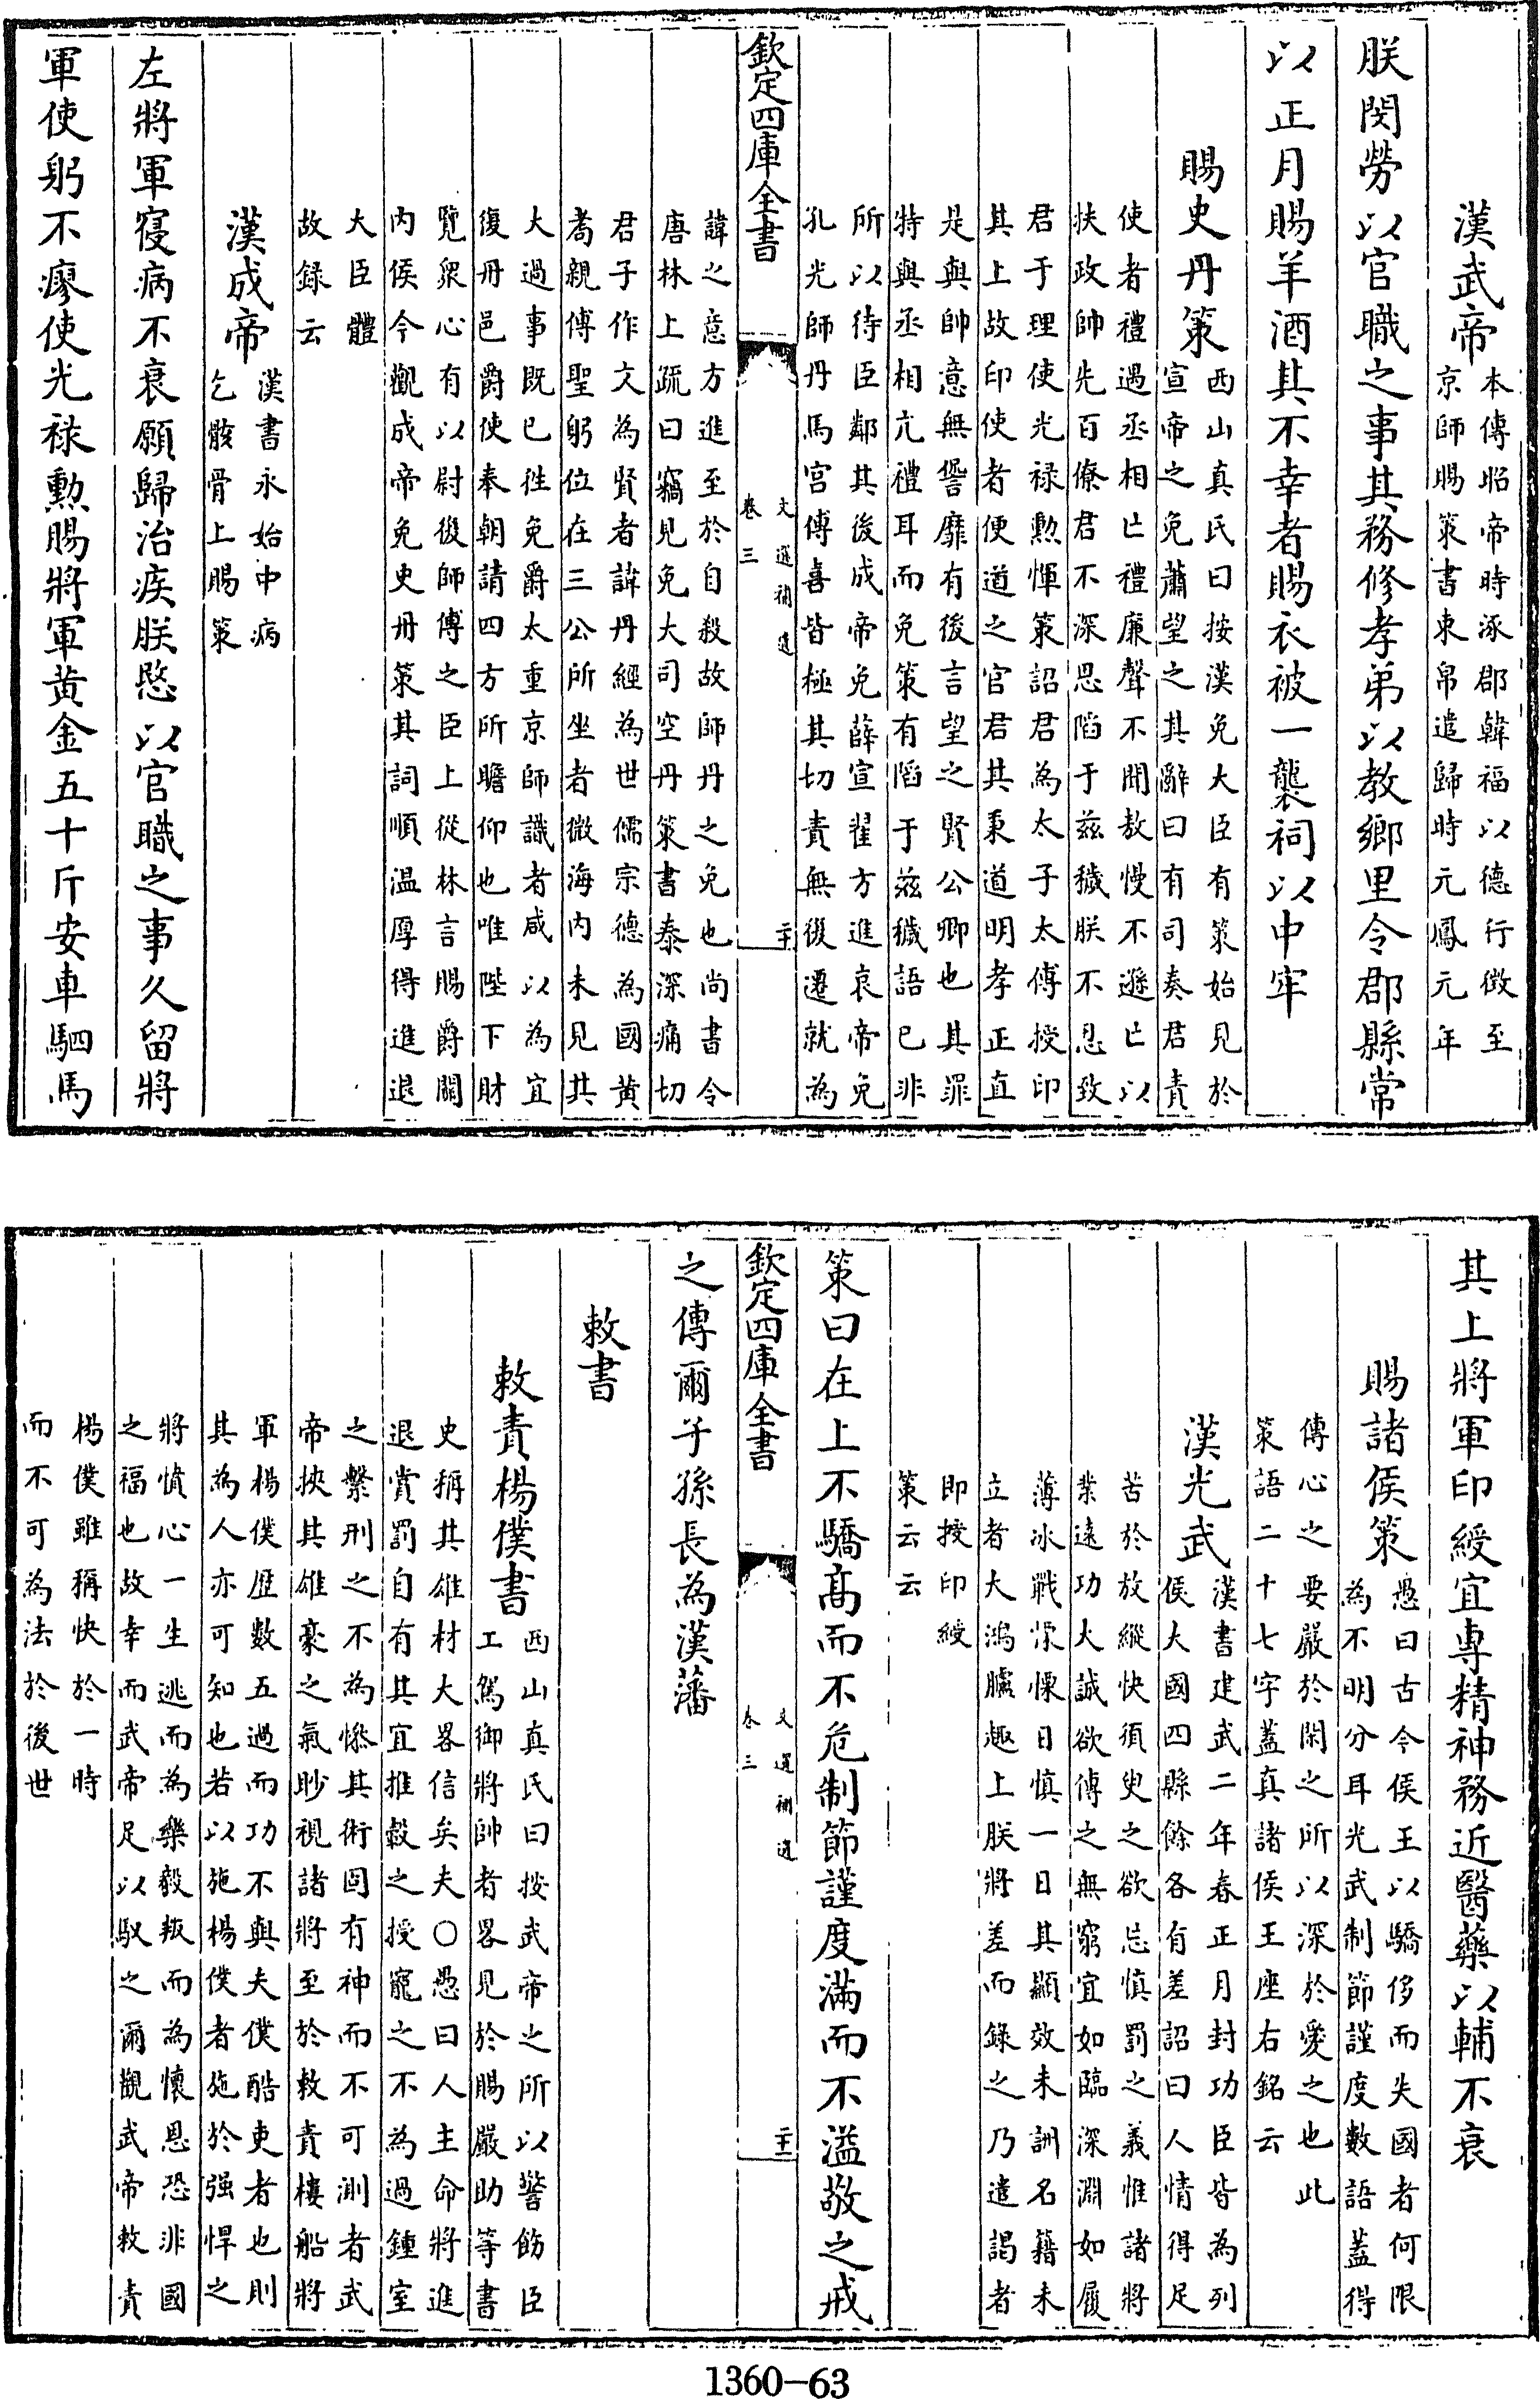 漢武帝本傳昭帝時涿郡韓福以德行徴至
京師賜策書束帛遣歸時元鳳元年
朕閔勞以官職之事其務修孝弟以教鄉里令郡縣常
以正月賜羊酒其不幸者賜衣被一襲祠以中牢
賜史丹策西山真氏曰按漢免大臣有策始見於
宣帝之免蕭望之其辭曰有司奏君責
使者禮遇丞相亡禮亷聲不聞敖慢不遜亡以
扶政帥先百僚君不深思䧟于兹穢朕不忍致
君于理使光祿勲惲策詔君為太子太傅授印
其上故印使者便道之官君其秉道明孝正直
是與帥意無諐靡有後言望之賢公卿也其罪
特與丞相亢禮耳而免策有䧟于兹穢語已非
所以待臣鄰其後成帝免薛宣翟方進哀帝免
孔光師丹馬宮傅喜皆極其切責無復遷就為
欽定四庫全書
文選補遺
卷三
二十
諱之意方進至於自殺故師丹之免也尚書令
唐林上疏曰竊見免大司空丹策書泰深痛切
君子作文為賢者諱丹經為世儒宗德為國黄
耉親傅聖躬位在三公所坐者微海内未見其
大過事既已徃免爵太重京師識者咸以為宜
復丹邑爵使奉朝請四方所瞻仰也唯陛下財
覽衆心有以尉復師傅之臣上從林言賜爵關
内侯今觀成帝免史丹策其詞順温厚得進退
大臣體
故録云
漢成帝漢書永始中病
乞骸骨上賜策
左將軍寢病不衰願歸治疾朕愍以官職之事久留將
軍使躬不瘳使光祿勲賜將軍黄金五十斤安車駟馬
其上將軍印綬宜専精神務近醫藥以輔不衰
賜諸侯策愚曰古今侯王以驕侈而失國者何限
為不明分耳光武制節謹度數語蓋得
傳心之要嚴於閑之所以深於愛之也此
策語二十七字蓋真諸侯王座右銘云
漢光武漢書建武二年春正月封功臣皆為列
侯大國四縣餘各有差詔曰人情得足
苦於放縱快須臾之欲忘慎罰之義惟諸將
業逺功大誠欲傳之無窮宜如臨深淵如履
薄冰戰慄慄日慎一日其顯效未詶名籍未
立者大鴻臚趣上朕將差而録之乃遣謁者
即授印綬
策云云
策曰在上不驕髙而不危制節謹度滿而不溢敬之戒
欽定四庫全書
文選補遺
卷三
二十一
之傳爾子孫長為漢藩
敕書
敕責楊僕書西山真氏曰按武帝之所以警飭臣
工駕御將帥者畧見於賜嚴助等書
史稱其雄材大畧信矣夫○愚曰人主命將進
退賞罰自有其宜推轂之授寵之不為過鍾室
之繫刑之不為慘其術固有神而不可測者武
帝挾其雄豪之氣眇視諸將至於敕責樓船將
軍楊僕歴數五過而功不與夫僕酷吏者也則
其為人亦可知也若以施楊僕者施於强悍之
將憤心一生逃而為樂毅叛而為懷恩恐非國
之福也故幸而武帝足以馭之爾觀武帝敕責
楊僕雖稱快於一時
而不可為法於後世
1360-63